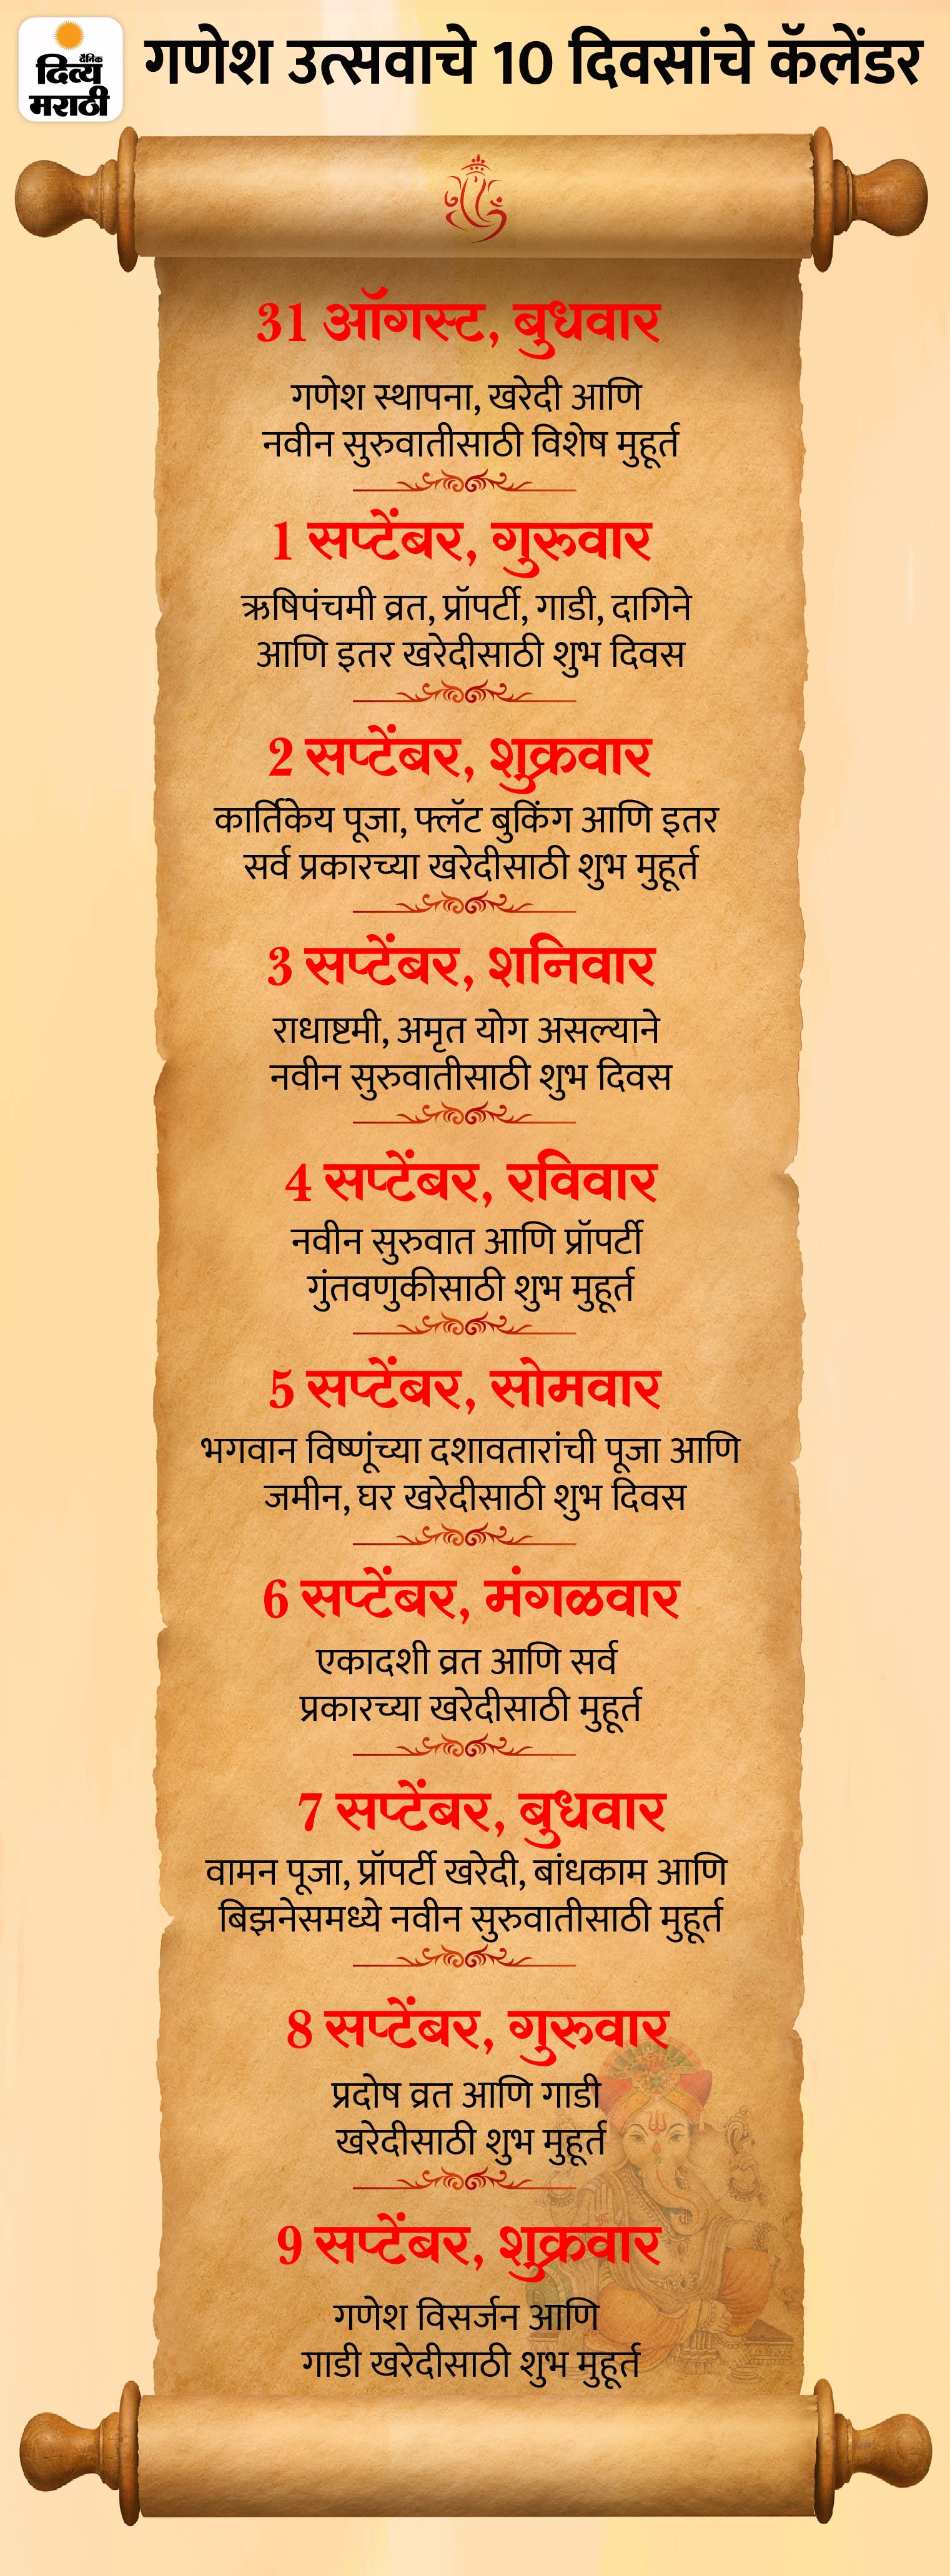 दैनिक
दिव्य
मराठी
गणेश उत्सवाचे 10 दिवसांचे कॅलेंडर
31 ऑगस्ट, बुधवार
गणेश स्थापना, खरेदी आणि
नवीन सुरुवातीसाठी विशेष मुहूर्त
1 सप्टेंबर, गुरूवार
ऋषिपंचमी व्रत, प्रॉपर्टी, गाडी, दागिने
आणि इतर खरेदीसाठी शुभ दिवस
2 सप्टेंबर, शुक्रवार
कार्तिकेय पूजा, फ्लॅट बुकिंग आणि इतर
सर्व प्रकारच्या खरेदीसाठी शुभ मुहूर्त
3 सप्टेंबर, शनिवार
राधाष्टमी, अमृत योग असल्याने
नवीन सुरुवातीसाठी शुभ दिवस
4 सप्टेंबर, रविवार
नवीन सुरुवात आणि प्रॉपर्टी
गुंतवणुकीसाठी शुभ मुहूर्त
5 सप्टेंबर, सोमवार
भगवान विष्णूंच्या दशावतारांची पूजा आणि
जमीन, घर खरेदीसाठी शुभ दिवस
6 सप्टेंबर, मंगळवार
एकादशी व्रत आणि सर्व
प्रकारच्या खरेदीसाठी मुहूर्त
7 सप्टेंबर, बुधवार
वामन पूजा, प्रॉपर्टी खरेदी, बांधकाम आणि
बिझनेसमध्ये नवीन सुरुवातीसाठी मुहूर्त
8 सप्टेंबर, गुरूवार
प्रदोष व्रत आणि गाडी
खरेदीसाठी शुभ मुहूर्त
9 सप्टेंबर, शुक्रवार
गणेश विसर्जन आणि
गाडी खरेदीसाठी शुभ मुहूर्त